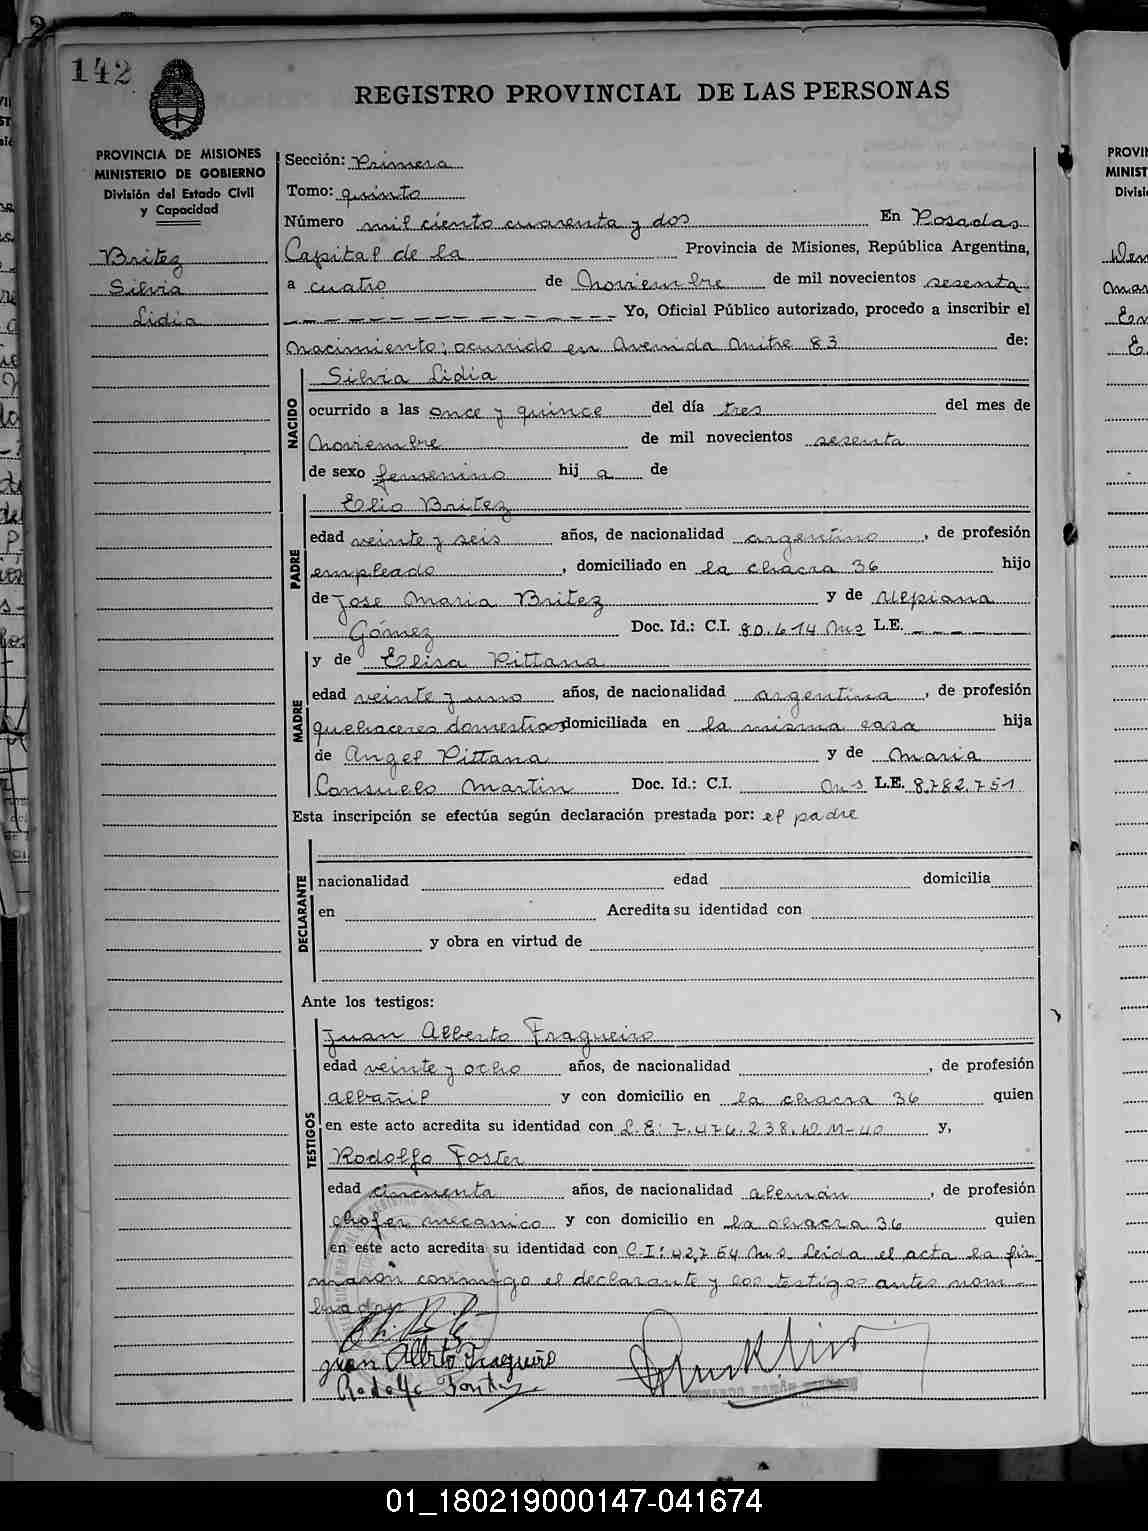 142
REGISTRO PROVINCIAL DE LAS PERSONAS
PROVINCIA DE MISIONES
MINISTERIO DE GOBIERNO
División del Estado Civil
y Capacidad
Britez
Silvia
Lidia
Sección: Primera
Tomo: quinto
Número mil ciento cuarenta y dos En Posadas
Capital de la Provincia de Misiones, República Argentina,
a cuatro de Noviembre de mil novecientos sesenta
Yo, Oficial Público autorizado, procedo a inscribir el
Nacimiento; ocurrido en Avenida Mitre 83 de:
NACIDO
Silvia Lidia
ocurrido a las once y quince del día tres del mes de
Noviembre de mil novecientos sesenta
de sexo femenino hij a de
PADRE
Elio Britez
edad veinte y seis años, de nacionalidad argentino, de profesión
empleado, domiciliado en la chacra 36 hijo
de Jose Maria Britez y de Ulpiana
Gómez Doc. Id.: C.I. 80.614 Mns L.E.
MADRE
y de Elisa Pittana
edad veinte y uno años, de nacionalidad argentina, de profesión
quehaceres domesticos domiciliada en la misma casa hija
de Angel Pittana y de Maria
Consuelo Martin Doc. Id.: C.I. Mns L.E. 8.782.751
Esta inscripción se efectúa según declaración prestada por: el padre
DECLARANTE
nacionalidad edad domicilia
en Acredita su identidad con
y obra en virtud de
Ante los testigos:
TESTIGOS
Juan Alberto Fragueiro
edad veinte y ocho años, de nacionalidad , de profesión
albañil y con domicilio en la chacra 36 quien
en este acto acredita su identidad con L.E: 7.476.238.D.M-40 y,
Rodolfo Foster
edad cincuenta años, de nacionalidad alemán, de profesión
chofer mecanico y con domicilio en la chacra 36 quien
en este acto acredita su identidad con C.I: 42,764 Mns Leida el acta la fir
maron conmigo el declarante y los testigos antes nom-
brados
Juan Alberto Fragueiro
Rodolfo
01_180219000147-041674